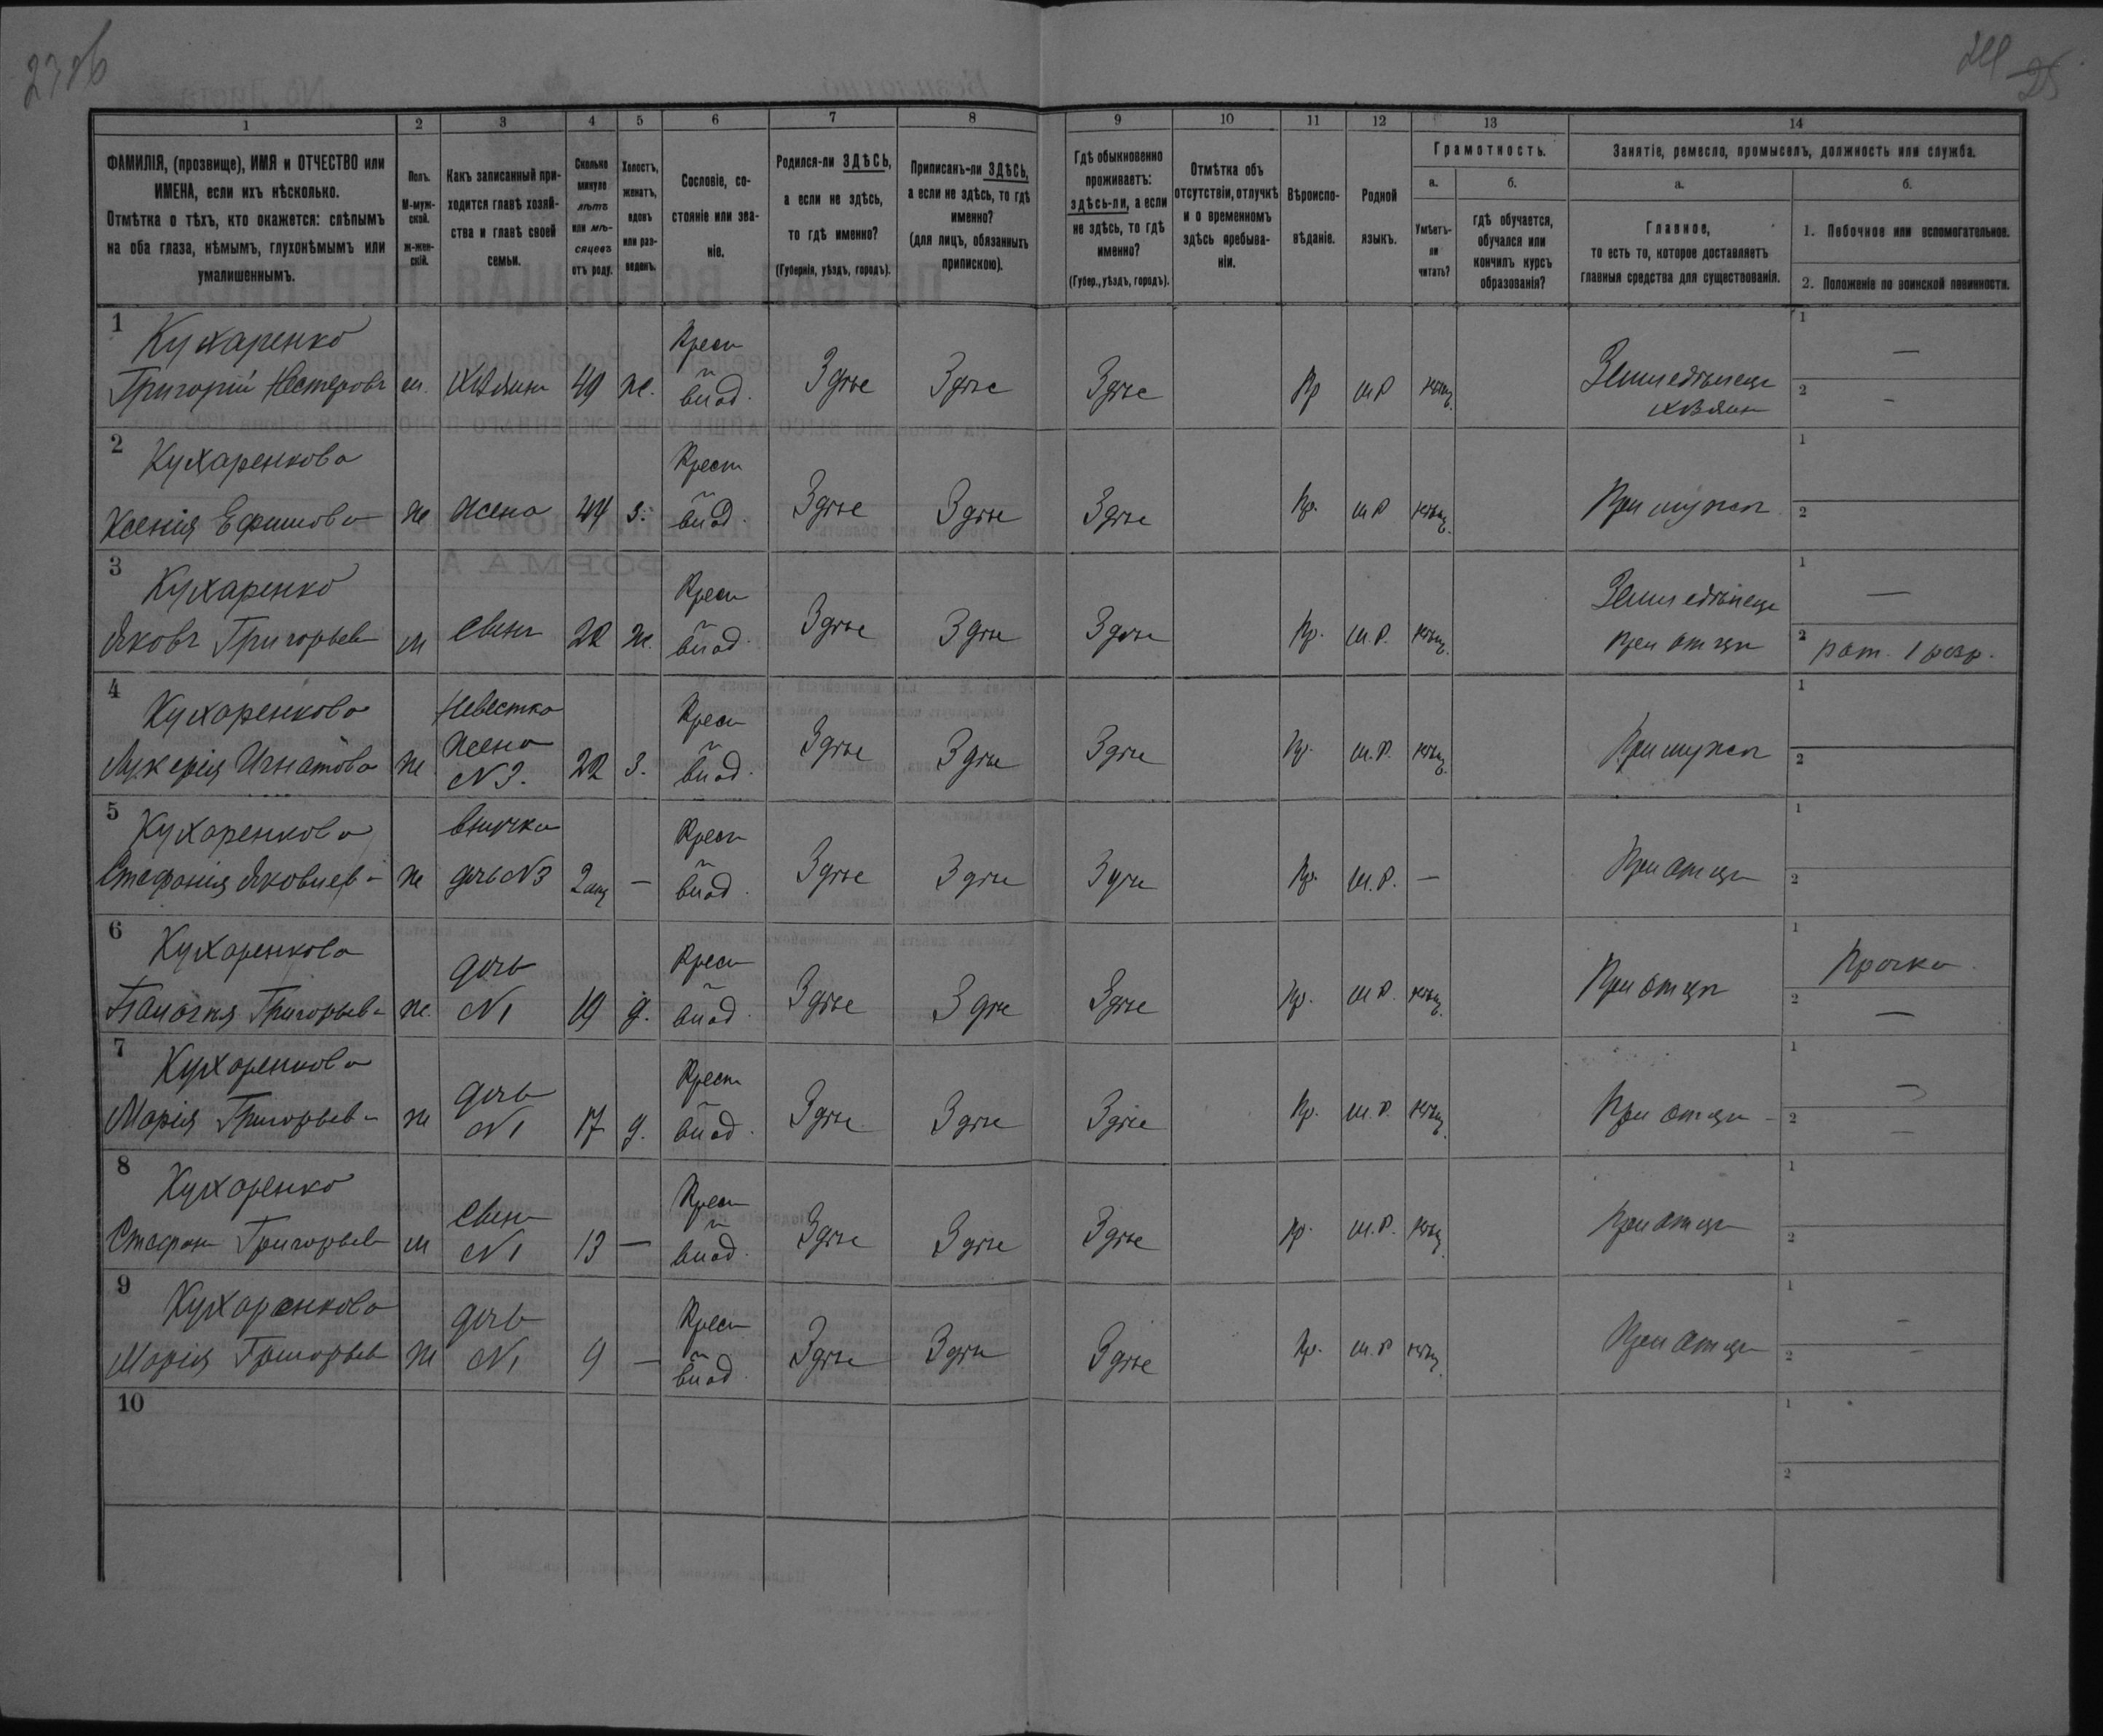 1 2 3 4 5 6 7 8 9 10 11 12 13 14
ФАМИЛІЯ, (прозвище), ИМЯ и ОТЧЕСТВО или
ИМЕНА, если ихъ нѣсколько.
Отмѣтка о тѣхъ, кто окажется: слѣпымъ
на оба глаза, нѣмымъ, глухонѣмымъ или
умалишеннымъ.
Полъ.
М-муж-
ской.
ж-жен-
скій.
Какъ записанный при-
ходится главѣ хозяй-
ства и главѣ своей
семьи.
Сколько
минуло
лѣтъ
или мѣ-
сяцевъ
отъ роду.
Холостъ,
женатъ,
вдовъ
или раз-
веденъ.
Сословіе, со-
стояніе или зва-
ніе.
Родился-ли ЗДѢСЬ,
а если не здѣсь,
то гдѣ именно?
(Губернія, уѣздъ, городъ).
Приписанъ-ли ЗДѢСЬ,
а если не здѣсь, то гдѣ
именно?
(для лицъ, обязанныхъ
припискою).
Гдѣ обыкновенно
проживаетъ:
здѣсь-ли, а если
не здѣсь, то гдѣ
именно?
(Губер., уѣздъ, городъ).
Отмѣтка объ
отсутствіи, отлучкѣ
и о временномъ
здѣсь пребыва-
ніи.
Вѣроиспо-
вѣданіе.
Родной
языкъ.
Грамотность.
а.
Умѣетъ-
ли
читать?
б.
гдѣ обучается,
обучался или
кончилъ курсъ
образованія?
Занятіе, ремесло, промыселъ, должность или служба.
а.
Главное,
то есть то, которое доставляетъ
главныя средства для существованія.
б.
1. Побочное или вспомогательное.
2. Положеніе по воинской повинности.
1 Кухаренко
Григорій Нестеровъ м. хозяинъ 49 ж. Крест. влад. Здѣсь Здѣсь Здѣсь Пр м.р нѣтъ Земледѣлецъ
хозяин 1 — 2 -
2 Кухаренкова
Ксенія Ефимова ж жена 44 з. Крест. влад. Здѣсь Здѣсь Здѣсь Пр. м р нѣтъ При мужѣ 1 2
3 Кухаренко
Яковъ Григорьев м Сынъ 22 ж. Крест влад. Здѣсь Здѣсь Здѣсь Пр. м.р. нѣтъ Земледѣлецъ
при отцѣ 1 — 2 рат. 1 разр.
4 Кухаренкова
Лукерія Игнатова ж Невестка
жена
N 3. 22 з. Крест влад. Здѣсь Здѣсь Здѣсь Пр. м.р. нѣтъ При мужѣ 1 2
5 Кухаренкова
Стефанія Яковлев- ж внучка
дочь N 3 2 мѣ — Крест влад. Здѣсь Здѣсь Здѣсь Пр. м.р. — При отцѣ 1 2
6 Кухаренкова
Григорьев- ж. дочь
N 1 19 д. Крест влад. Здѣсь Здѣсь Здѣсь Пр. м р. нѣтъ При отцѣ 1 2 —
7 Кухаренкова
Марія Григорьев- ж дочь
N 1 17 д. Крест влад. Здѣсь Здѣсь Здѣсь Пр. м.р. нѣтъ При отцѣ 1 — 2 —
8 Кухаренко
Стефан Григорьев м Сын
N 1 13 — Крест влад. Здѣсь Здѣсь Здѣсь Пр. м.р. нѣтъ При отцѣ 1 2
9 Кухаренкова
Марія Григорьев ж дочь
N 1 9 — Крест влад. Здѣсь Здѣсь Здѣсь Пр. м.р нѣтъ При отцѣ 1 - 2 -
10 1 2